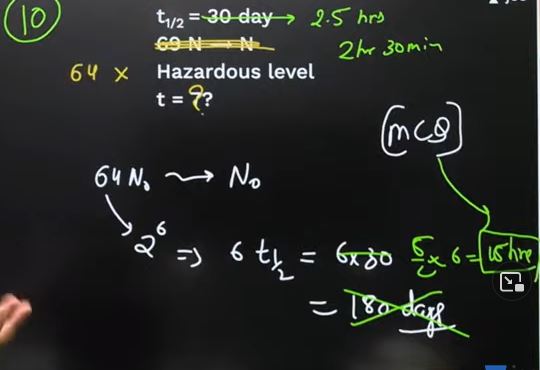 10
t1/2 = 30 day → 2.5 hrs
69 N → N 2hr 30min
64 × Hazardous level
t = ??
[MCQ]
64 N₀ → N₀
2⁶ ⇒ 6 t1/2 = 6×30 5/2 × 6 = 15 hrs
= 180 days